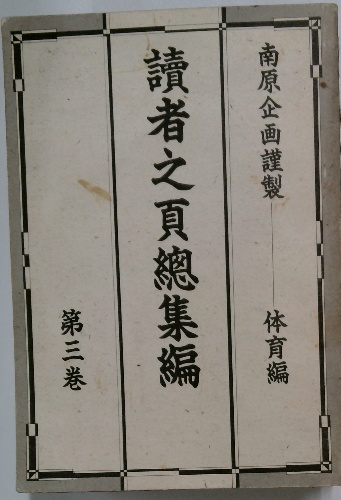 南原企画謹製——体育編
讀者之頁總集編
第三巻